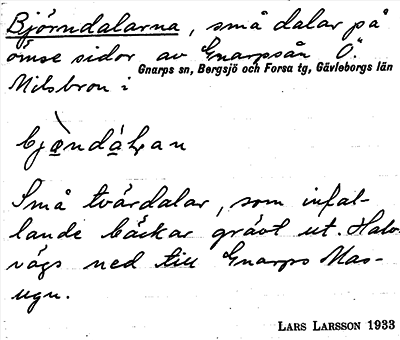 Björndalarna, små dalar på
ömse sidor av Gnarpsån Ö.
Gnarps sn, Bergsjö och Forsa tg, Gävleborgs län
Milsbron i
Små tvärdalar, som infal-
lande bäckar grävt ut. Halv-
vägs ned till Gnarps Mas-
ugn.
LARS LARSSON 1933